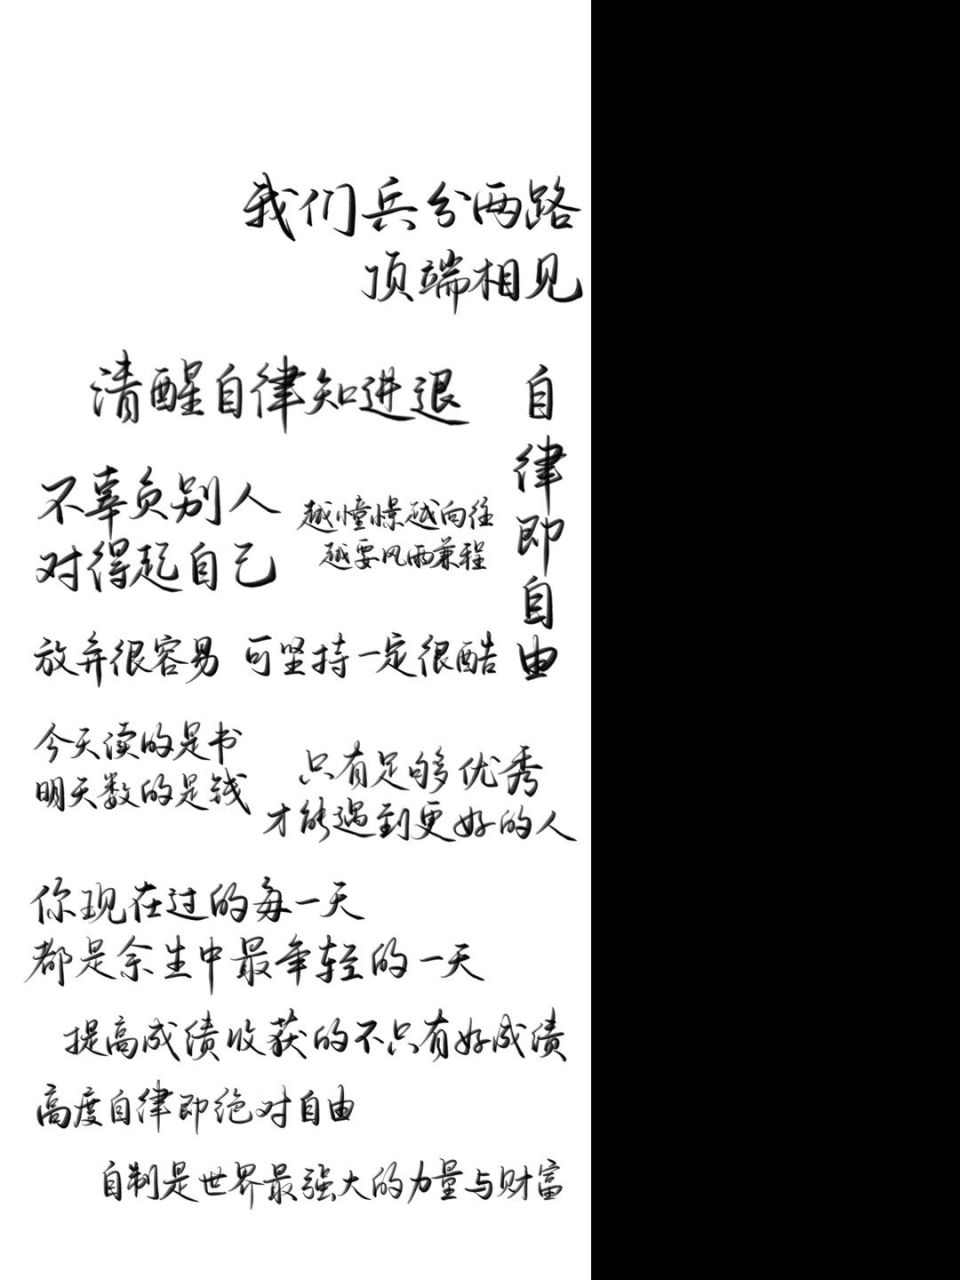 我们兵分两路
顶端相见
清醒自律知进退
自律即自由
不辜负别人
对得起自己
越憧憬越向往
越要风雨兼程
放弃很容易 可坚持一定很酷
今天读的是书
明天数的是钱
只有足够优秀
才能遇到更好的人
你现在过的每一天
都是余生中最年轻的一天
提高成绩收获的不只有好成绩
高度自律即绝对自由
自制是世界最强大的力量与财富